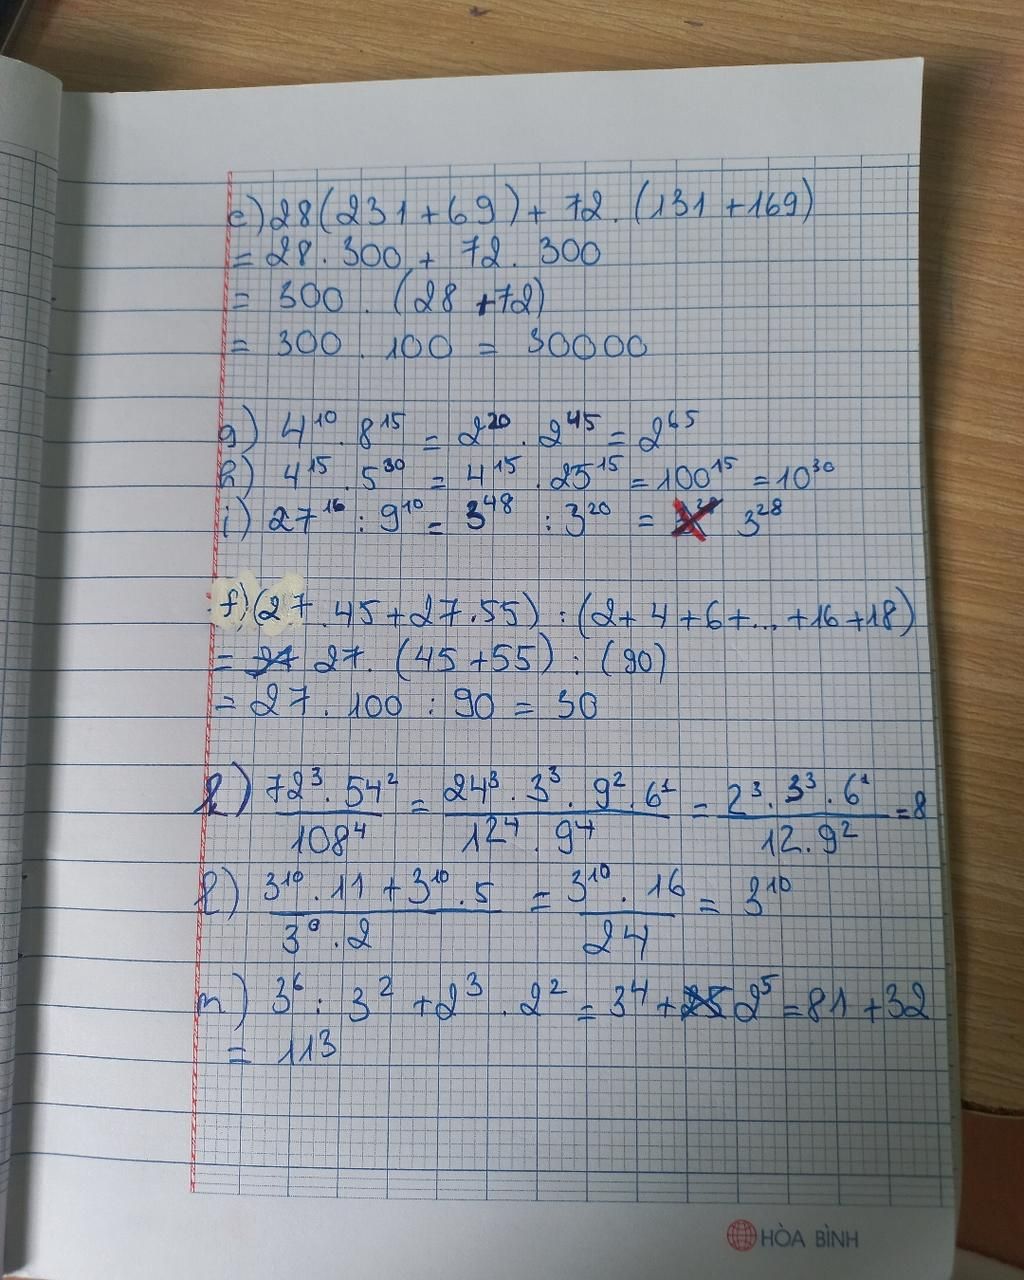 e) 28(231+69) + 72.(131+169)
= 28.300 + 72.300
= 300.(28+72)
= 300.100 = 30000
g) 4¹⁰.8¹⁵ = 2²⁰.2⁴⁵ = 2⁶⁵
h) 4¹⁵.5³⁰ = 4¹⁵.25¹⁵ = 100¹⁵ = 10³⁰
i) 27¹⁶:9¹⁰ = 3⁴⁸:3²⁰ = 3²⁸
f) (27.45+27.55):(2+4+6+...+16+18)
= 27.(45+55):(90)
= 27.100:90 = 30
k) 72³.54²/108⁴ = 24³.3³.9².6²/12⁴.9⁴ = 2³.3³.6²/12.9² = 8
l) 3¹⁰.11+3¹⁰.5/3⁹.2 = 3¹⁰.16/24 = 3¹⁰
m) 3⁶:3²+2³.2² = 3⁴+2⁵ = 81+32
= 113
HÒA BÌNH